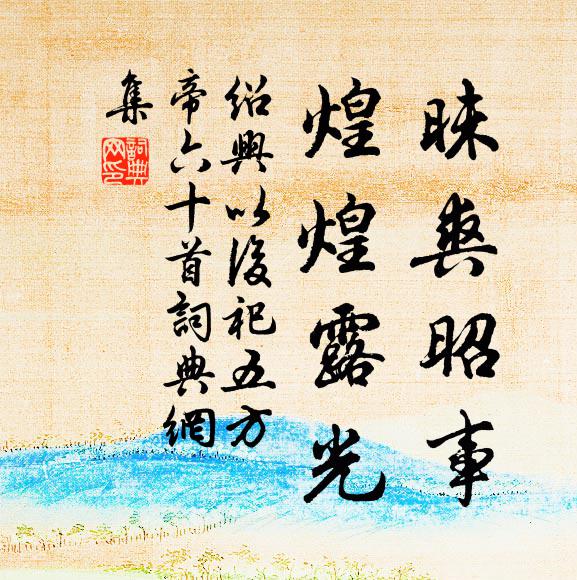 昧爽昭事
煌煌露光
紹興以後祀五方
帝六十首詞典網
集
詞典
网印